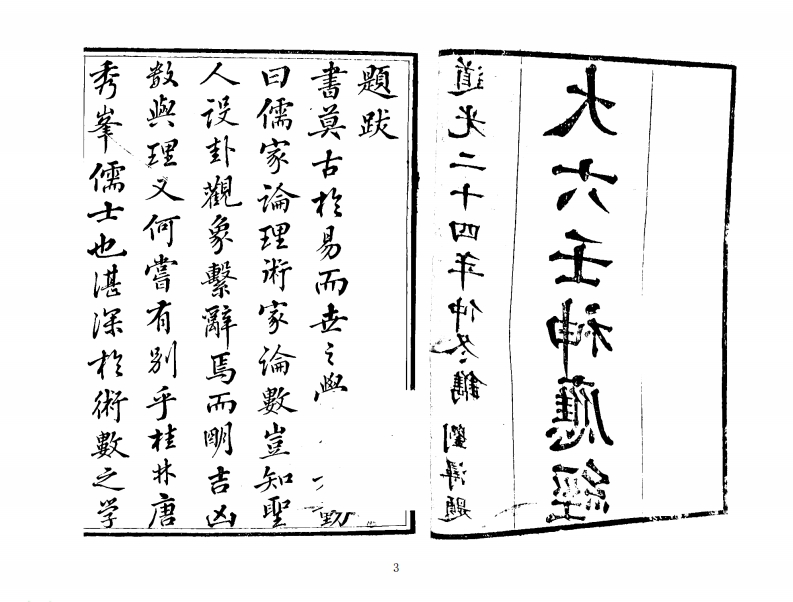 大六壬神應經
道光二十四年仲冬鐫 劉潯題
題跋
書莫古於易而世之學 動
曰儒家論理術家論數豈知聖
人設卦觀象繫辭焉而明吉凶
數與理又何嘗有別乎桂林唐
秀峯儒士也湛深於術數之学
3